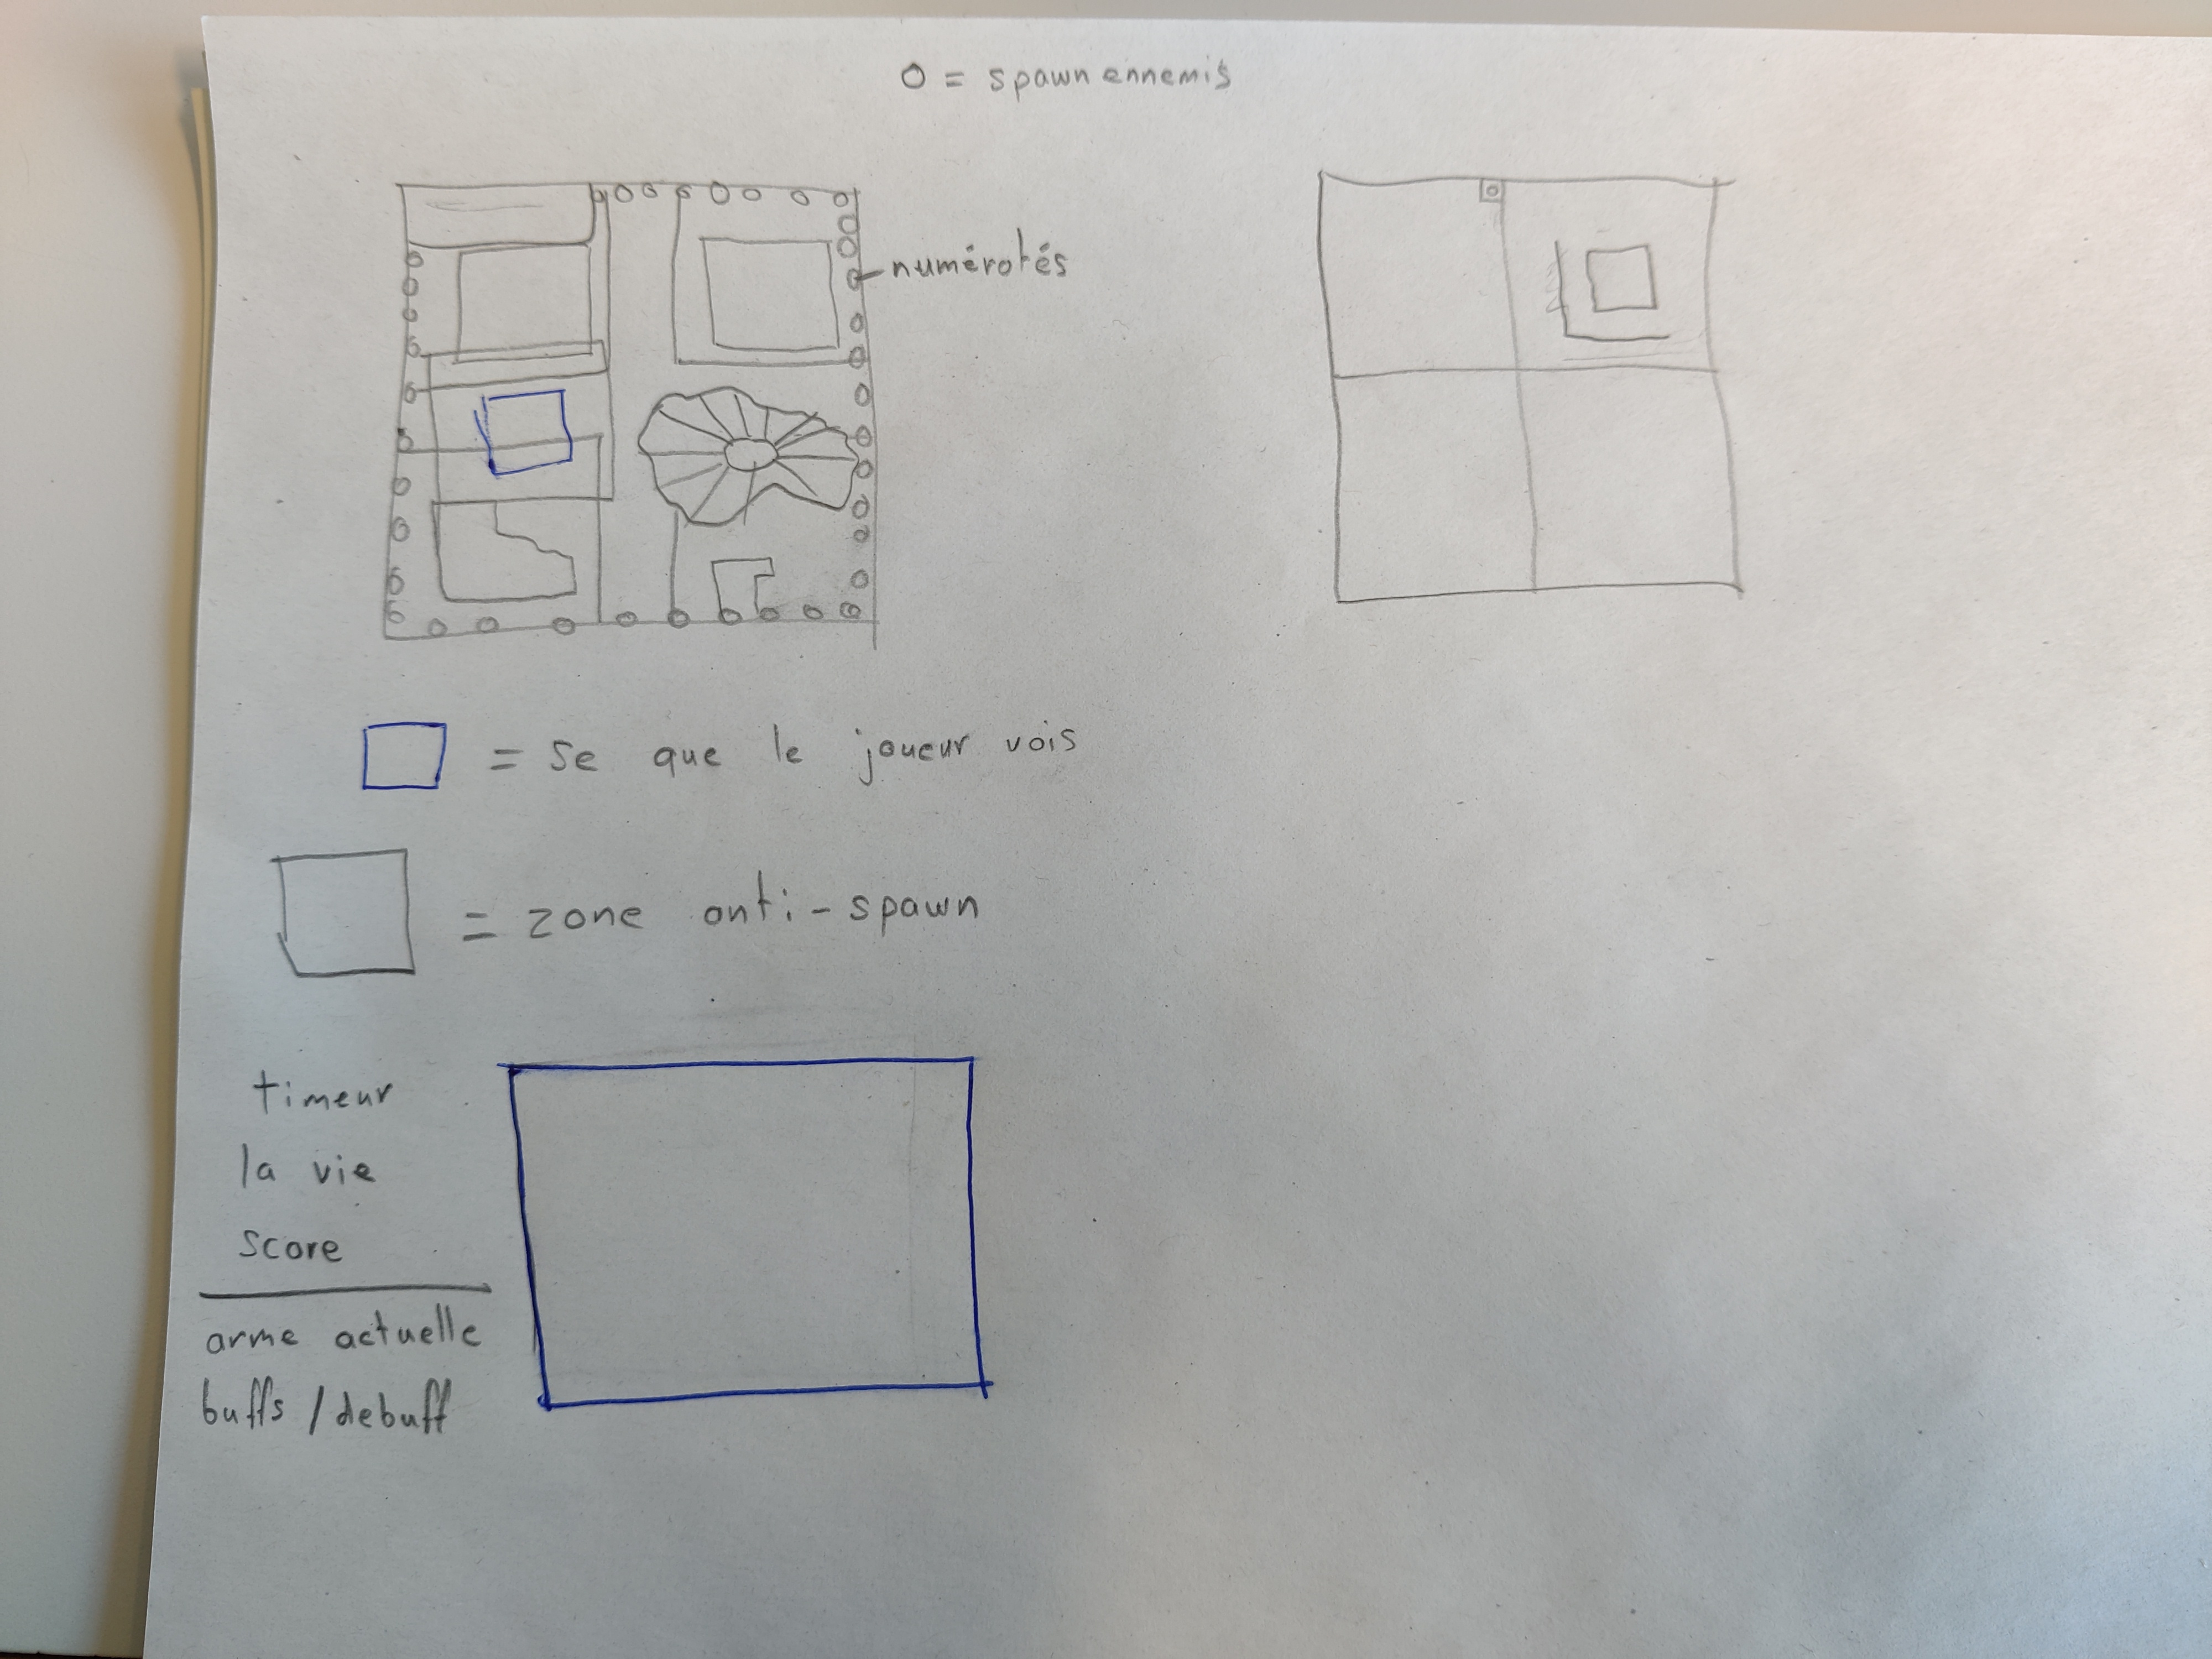 O = spawn ennemis
numérotés
= se que le joueur vois
= zone anti-spawn
timeur
la vie
score
arme actuelle
buffs / debuff